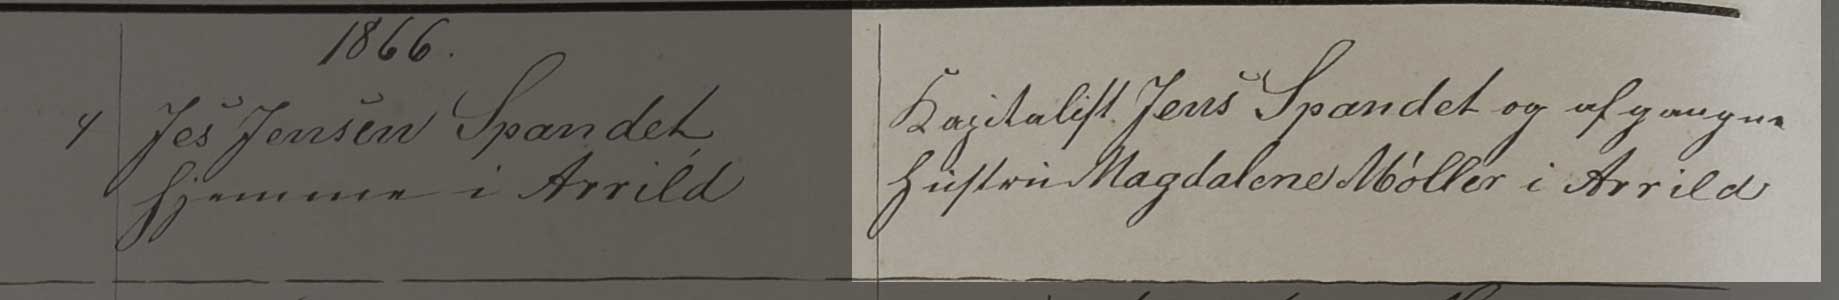 1866.
4 Jes Jensen Spandet
hjemme i Arrild
Kapitalist Jens Spandet og afgangne
Hustru Magdalene Möller i Arrild